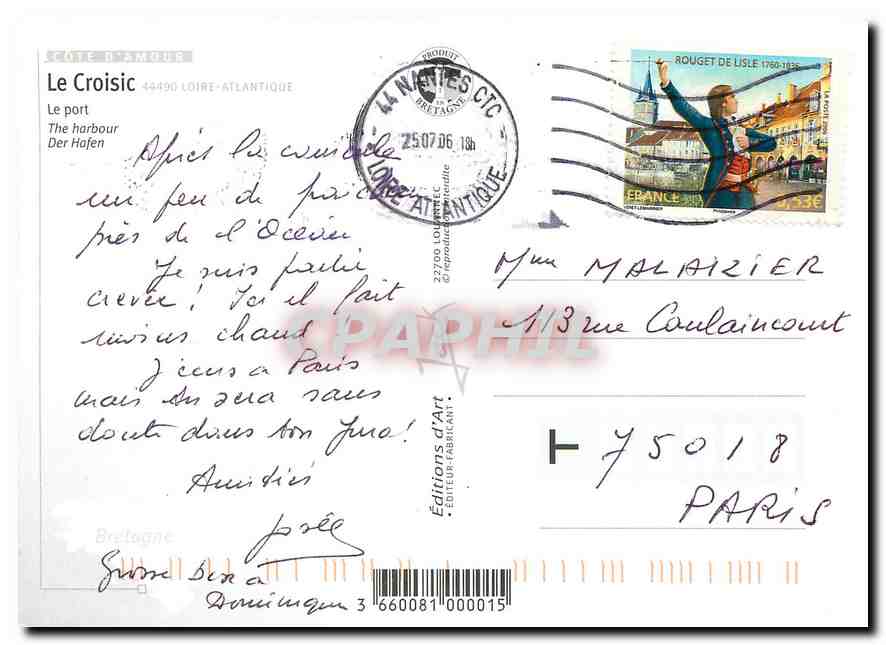 CÔTE D'AMOUR
Le Croisic 44490 LOIRE-ATLANTIQUE
Le port
The harbour
Der Hafen
Après la canicule
un peu de fraîcheur
près de l'Océan
Je suis partie
crevée ! Ici il fait
moins chaud !
J'écris à Paris
mais tu sera sans
doute dans ton Jura !
Amitiés
Grosse bise à
Dominique
Bretagne
PRODUIT EN BRETAGNE
44 NANTES CTC
25.07.06 18h
LOIRE ATLANTIQUE
22700 LOUANNEC
© reproduction interdite
Éditions d'Art
ÉDITEUR-FABRICANT
ROUGET DE LISLE 1760-1836
LA POSTE
FRANCE
0,53€
Mme MALAIZIER
113 rue Caulaincourt
75018
PARIS
CPAPHIL
3 660081 000015